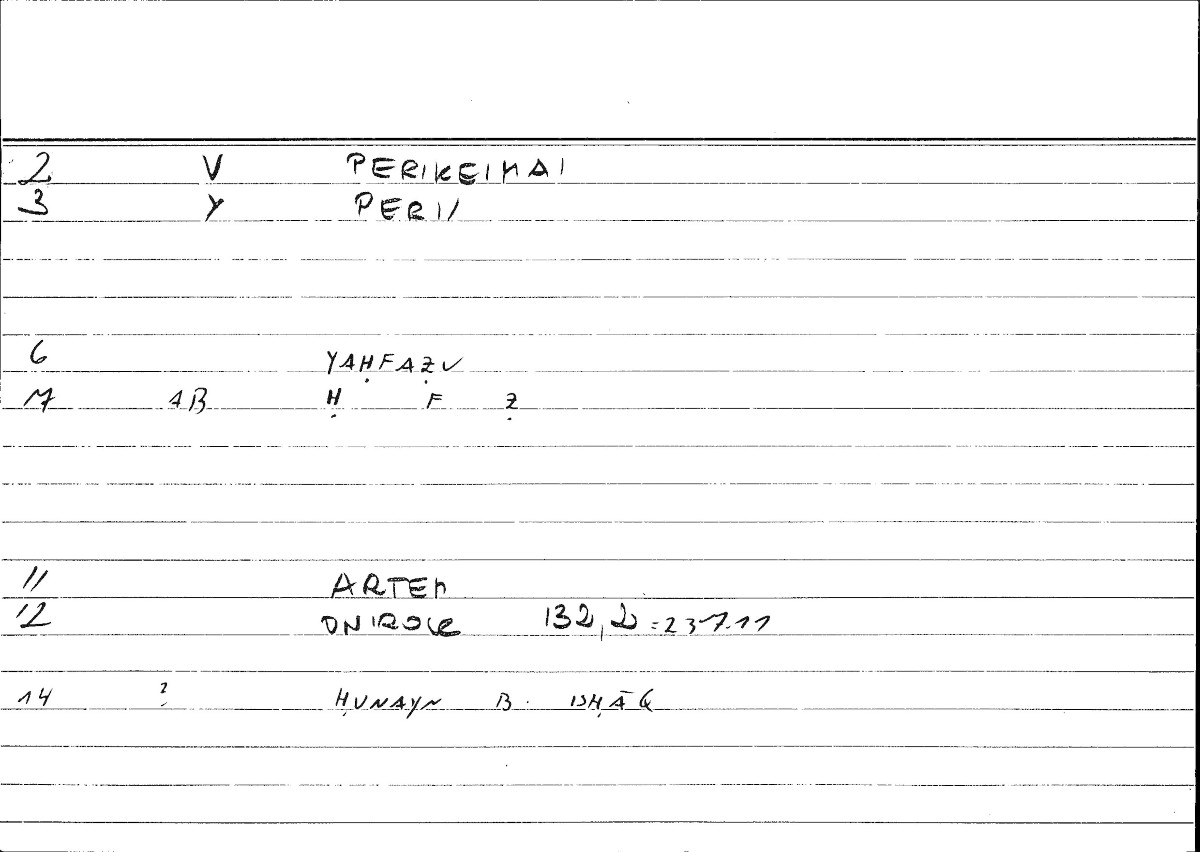 2 V PERIKEIMAI
3 Y PERI/
6 YAḤFAẒU
7 1B Ḥ F Ẓ
11 ARTEM
12 ONIROCR 132,2 = 237.11
14 ? ḤUNAYN B. ISḤĀQ